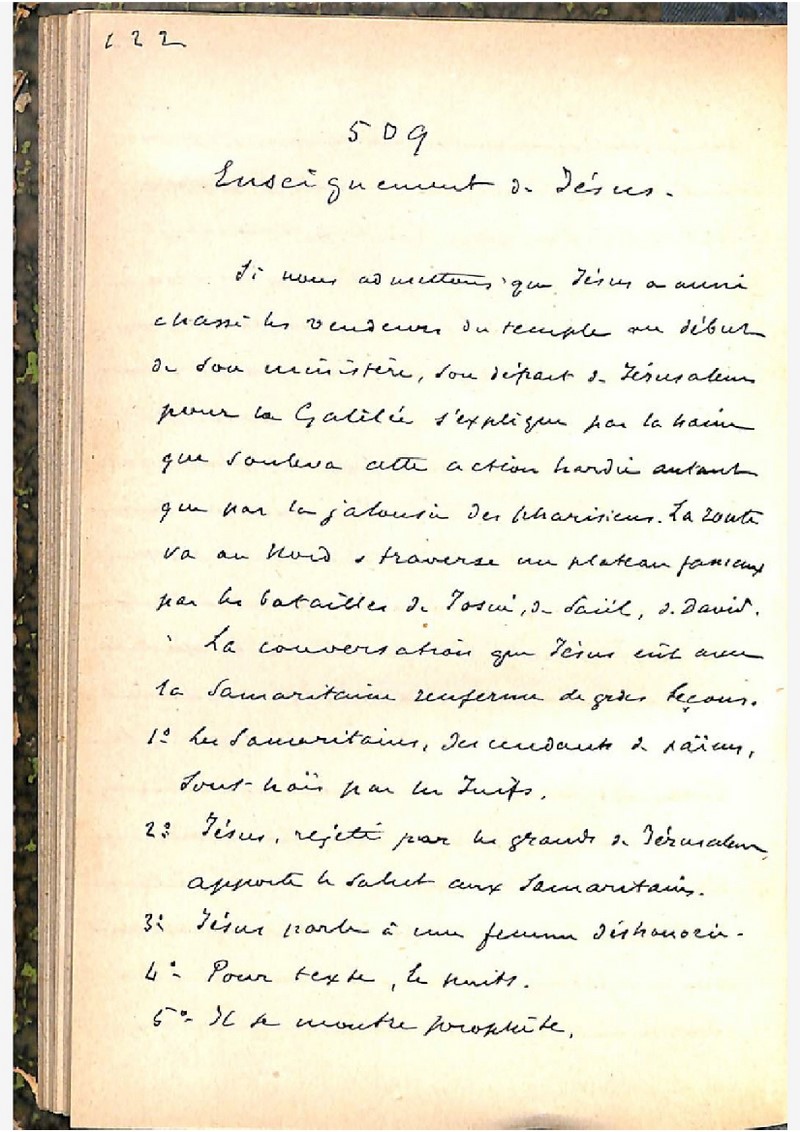 122
509
Enseignement de Jésus.
Si nous admettons que Jésus a aussi
chassé les vendeurs du temple au début
de son ministère, son départ de Jérusalem
pour la Galilée s'explique par la haine
que souleva cette action hardie autant
que par la jalousie des pharisiens. La route
va au Nord & traverse un plateau fameux
par les batailles de Josué, de Saül, de David.
La conversation que Jésus eut avec
la Samaritaine renferme de grdes leçons.
1º Les Samaritains, descendants de païens,
sont haïs par les Juifs.
2º Jésus, rejeté par les grands de Jérusalem,
apporte le salut aux Samaritains.
3º Jésus parle à une femme déshonorée.
4º Pour texte, le puits.
5º Il se montre prophète.